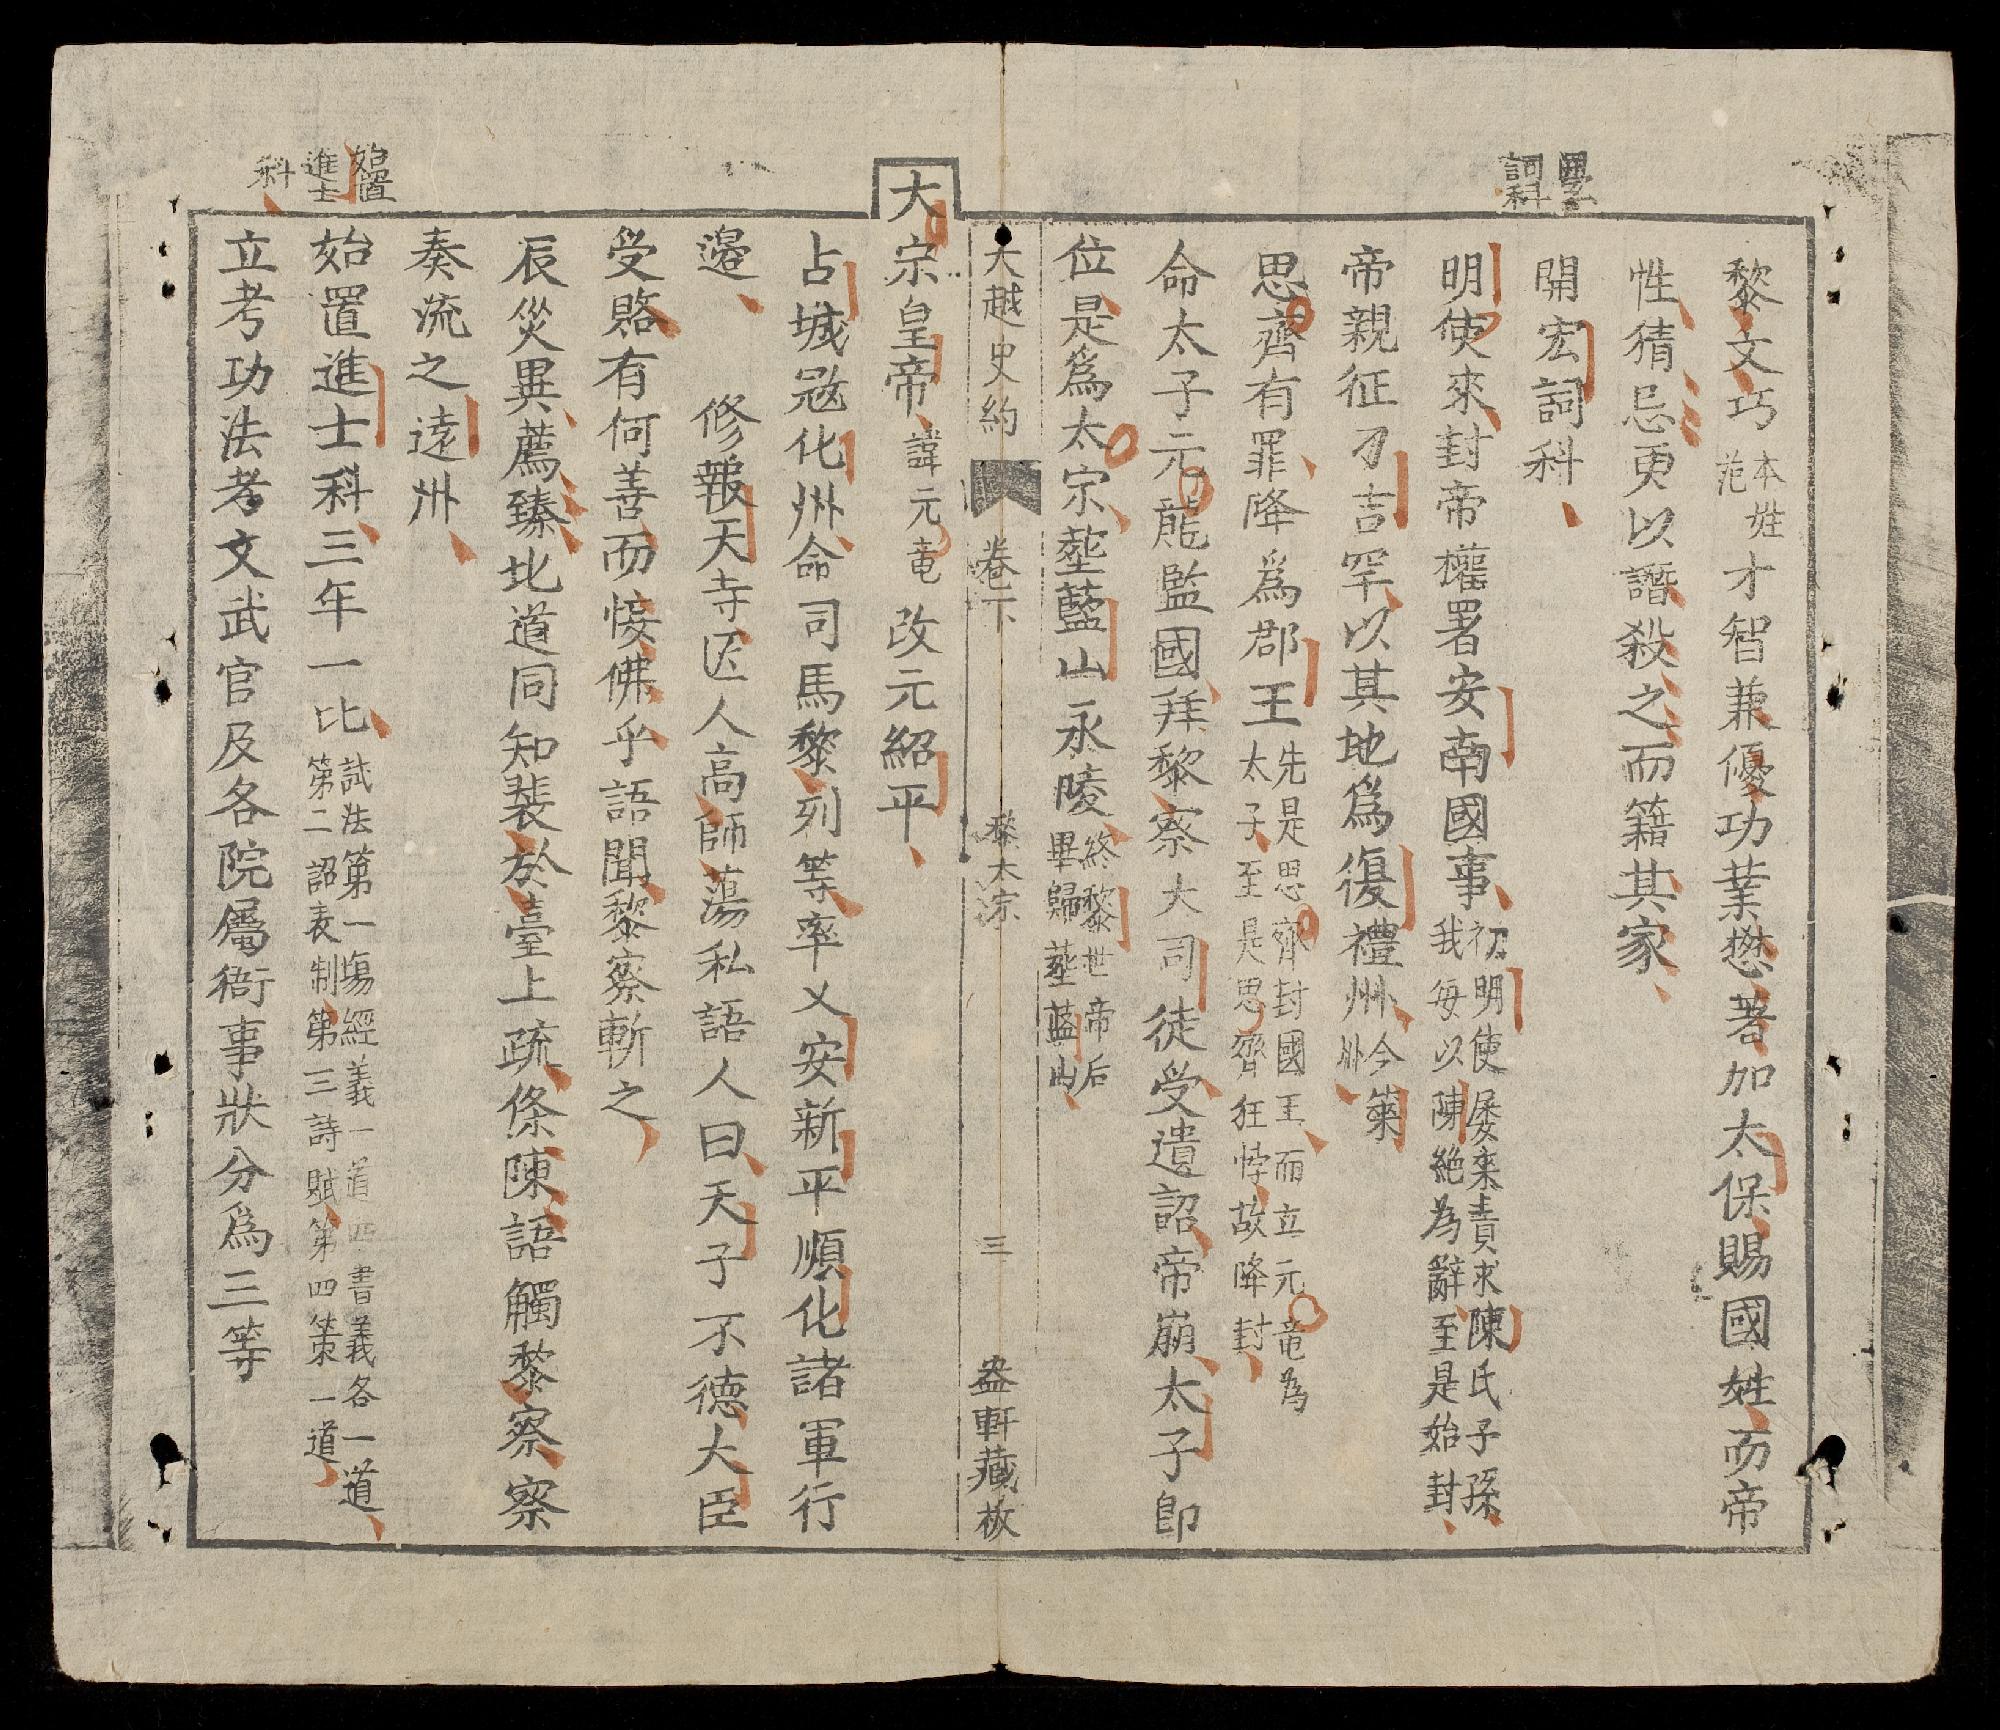 舉
詞科
黎文巧本姓范才智兼優功業懋著加太保賜國姓而帝
性猜忌更以譖殺之而籍其家
開宏詞科
明使來封帝權署安南國事初明使屡来責求陳氏子孫我每以陳絶為辭至是始封
帝親征刀吉罕以其地爲復禮州今萊州
思齊有罪降爲郡王先是思齊封國王而立元竜為太子至是思齊狂悖故降封
命太子元龍監國拜黎察大司徒受遺詔帝崩太子卽
位是爲太宗塟藍山永陵終黎世帝后畢歸塟藍山
大越史約 卷下 黎太宗 三 盎軒藏板
大宗皇帝諱元竜改元紹平
占城寇化州命司馬黎列等率乂安新平順化諸軍行
邊 修報天寺匠人高師蕩私語人曰天子不德大臣
受賂有何善而倿佛乎語聞黎察斬之
辰災異薦臻北道同知裴於臺上疏條陳語觸黎察察
奏流之遠州
始置
進士
科
始置進士科三年一比試法第一塲經義一道四書義各一道第二詔表制第三詩賦第四策一道
立考功法考文武官及各院屬衙事狀分爲三等